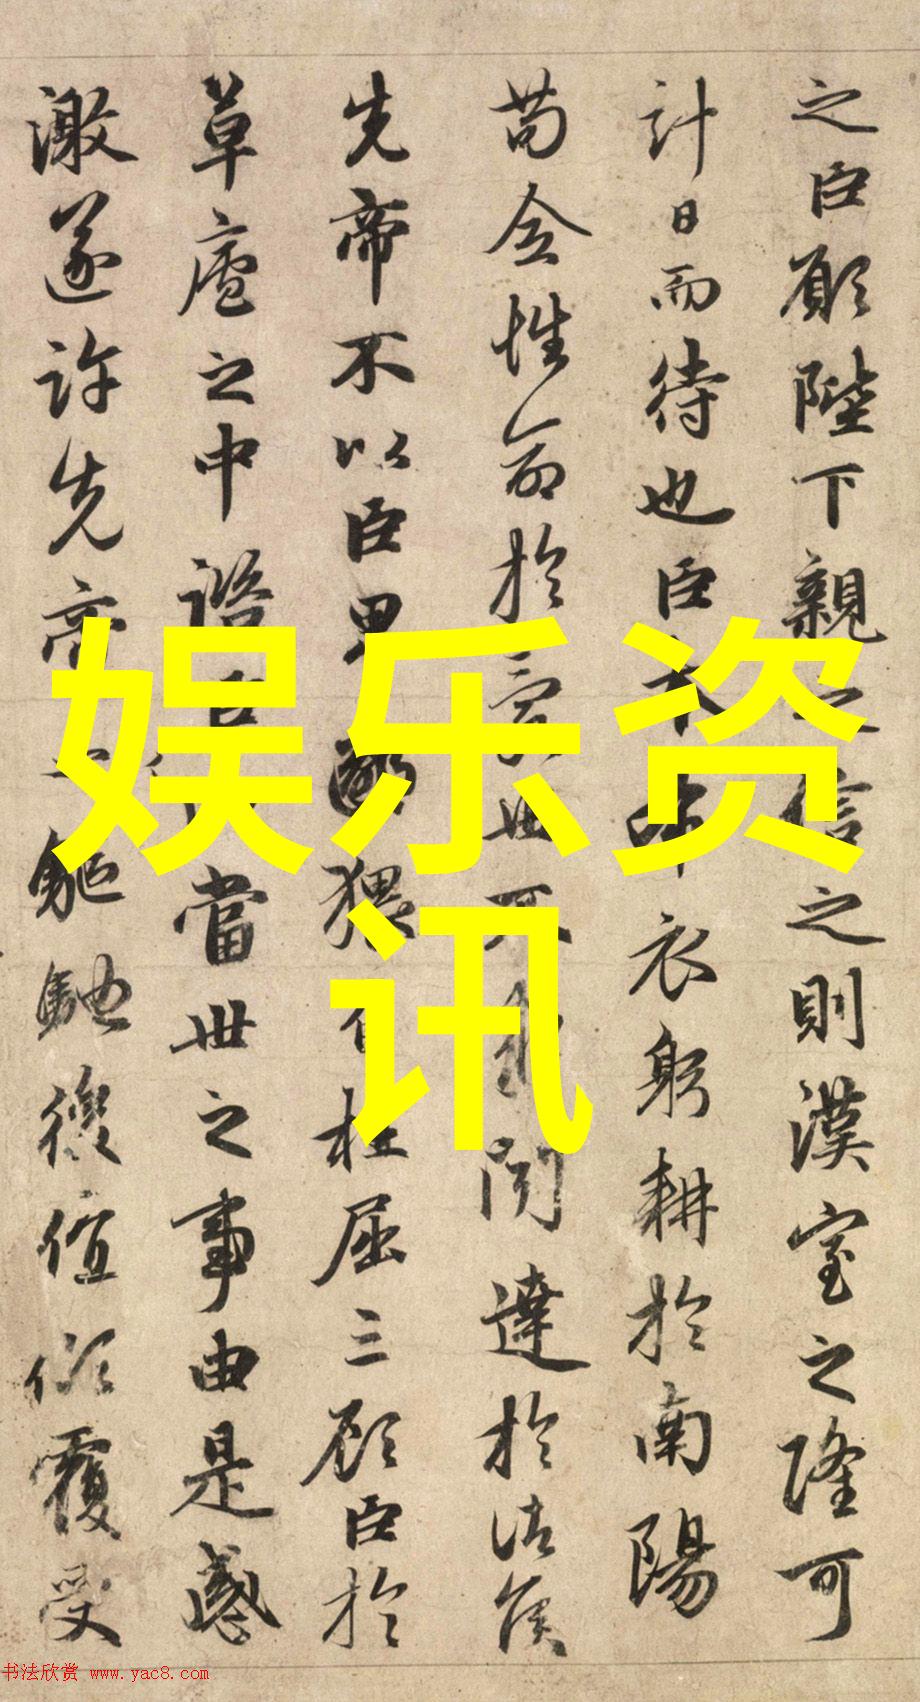 之臣願陛下親之信之則漢室之隆可
計日而待也臣本布衣躬耕於南陽
苟全性命於亂世不求聞達於諸侯
先帝不以臣卑鄙猥自枉屈三顧臣於
草廬之中諮臣以當世之事由是感
激遂許先帝以驅馳後值傾覆受
娱乐资
讯
书法欣赏 www.yac8.com